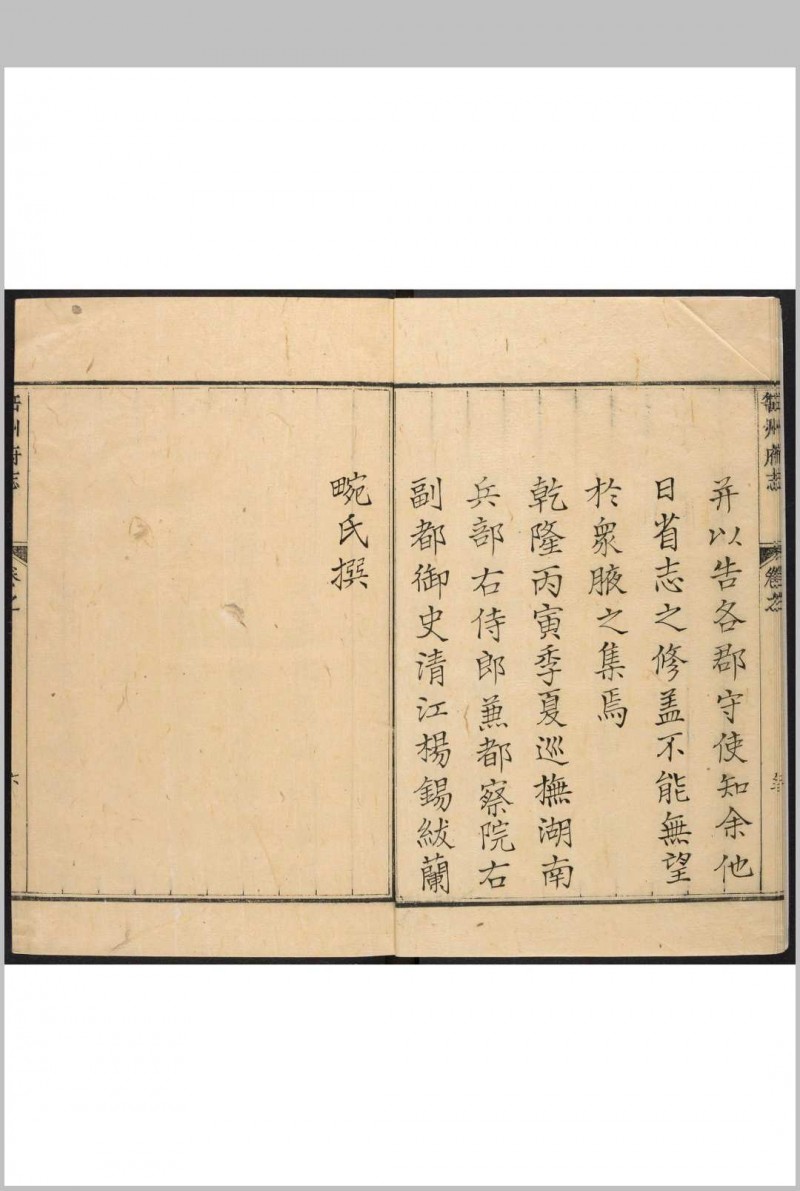 并以告各郡守使知余他
日省志之修盖不能無望
於衆腋之集焉
乾隆丙寅季夏巡撫湖南
兵部右侍郎兼都察院右
副都御史清江楊錫紱蘭
畹氏撰
州府志